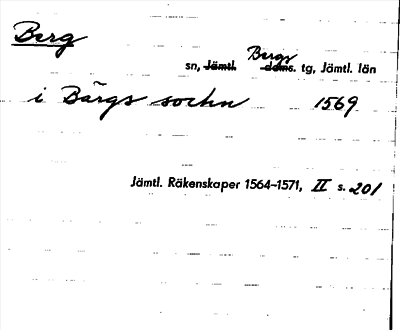 Berg
sn, Jämtl. Bergs doms. tg, Jämtl. län
i Bärgs sockn 1569
Jämtl. Räkenskaper 1564-1571, II s. 201